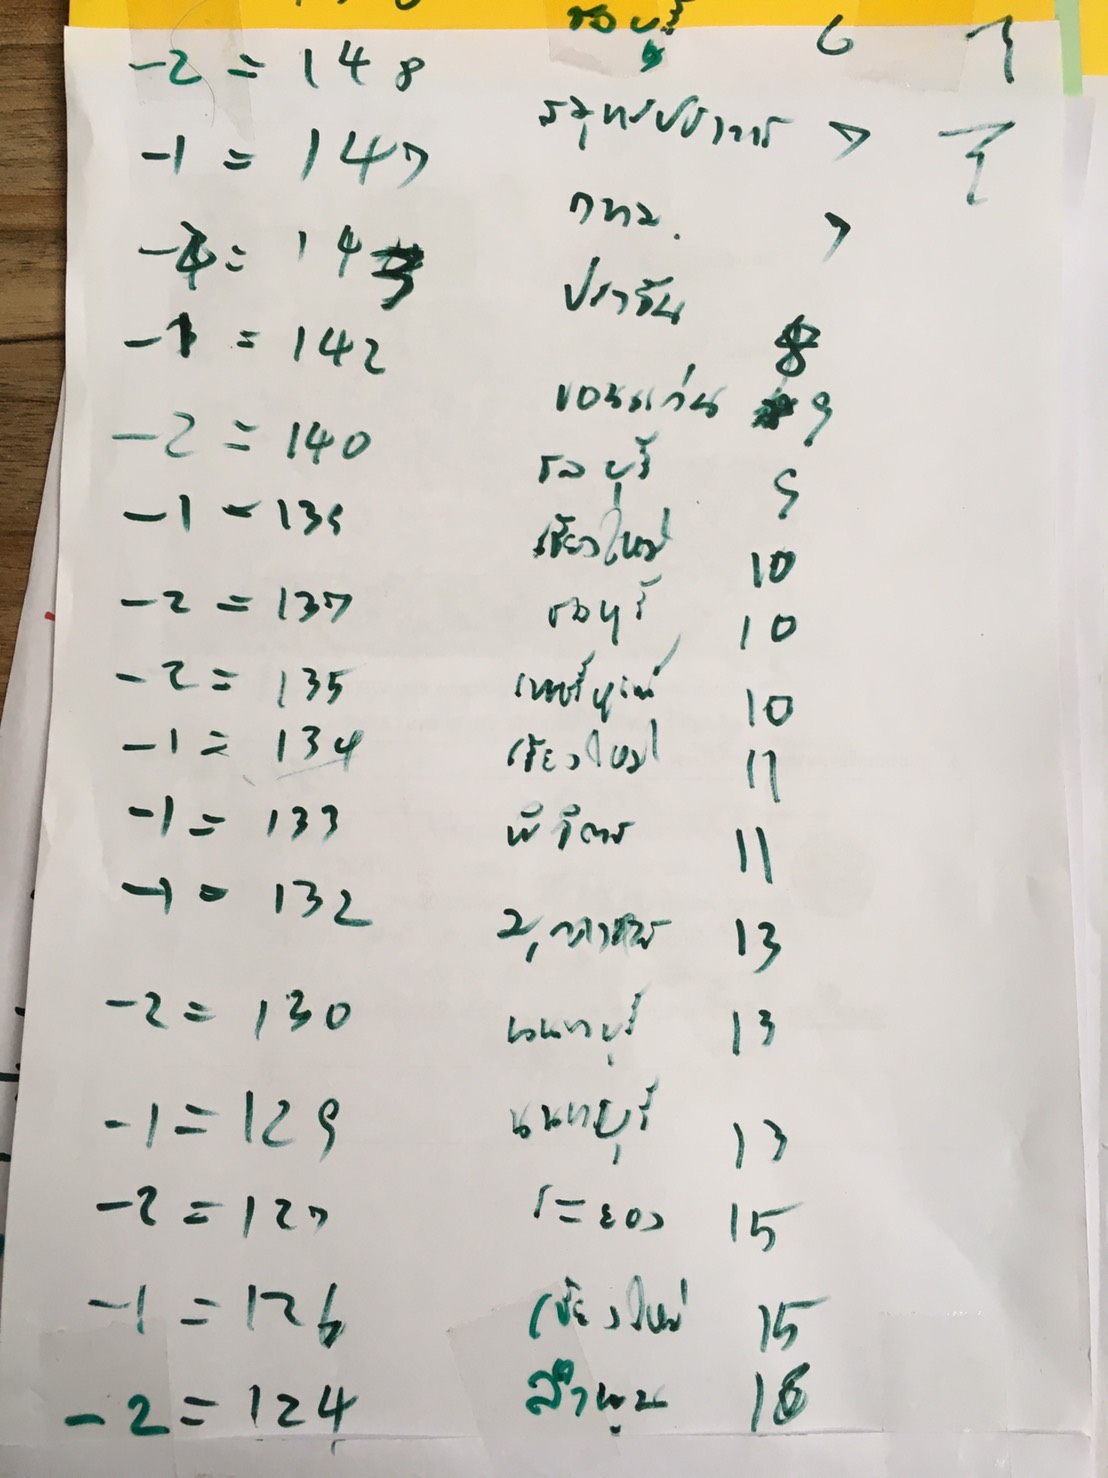 -2 = 148 ชลบุรี 6
-1 = 147 สมุทรปราการ 7
-4 = 143 กทม. 7
-1 = 142 ปราจีน 8
-2 = 140 ขอนแก่น 9
-1 = 139 ชลบุรี 9
-2 = 137 เชียงใหม่ 10
-2 = 135 ชลบุรี 10
-1 = 134 เพชรบูรณ์ 10
-1 = 133 เชียงใหม่ 11
-1 = 132 พิจิตร 11
-2 = 130 มุกดาหาร 13
-1 = 129 นนทบุรี 13
-2 = 127 นนทบุรี 13
-1 = 126 ระยอง 15
-2 = 124 เชียงใหม่ 15
ลำพูน 16